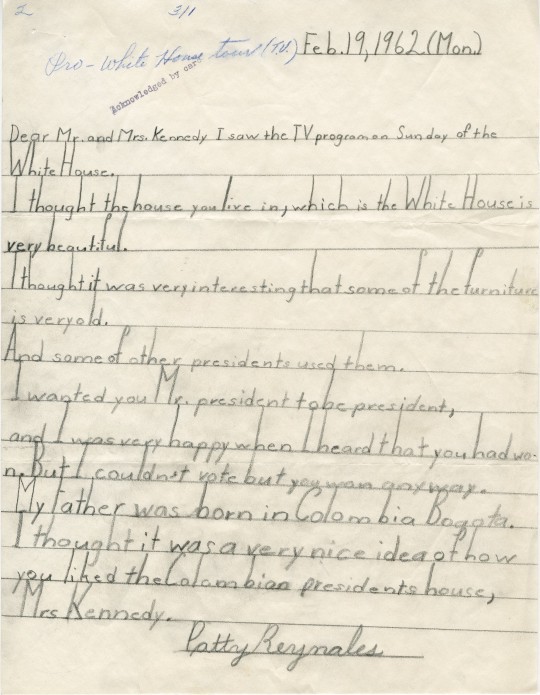 2
3/1
Pro-White House tour (TV.)
Feb. 19, 1962 (Mon.)
Acknowledged by card
Dear Mr. and Mrs. Kennedy I saw the TV program on Sunday of the
White House.
I thought the house you live in, which is the White House is
very beautiful.
I thought it was very interesting that some of the furniture
is very old.
And some of other presidents used them.
I wanted you Mr. president to be president,
and I was very happy when I heard that you had wo-
n. But I couldn't vote but you won anyway.
My father was born in Colombia Bogota.
I thought it was a very nice idea of how
you liked the Colombian presidents house,
Mrs Kennedy.
Patty Reynales